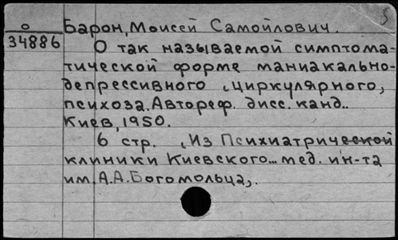 5
о Барон, Моисей Самойлович.
34886
О так называемой симптома-
тической форме маниакально-
депрессивного „циркулярного„
психоза. Автореф. дисс. канд..
Киев, 1950.
6 стр. „Из Психиатрической
клиники Киевского... мед. ин-та
им. А.А. Богомольца„.